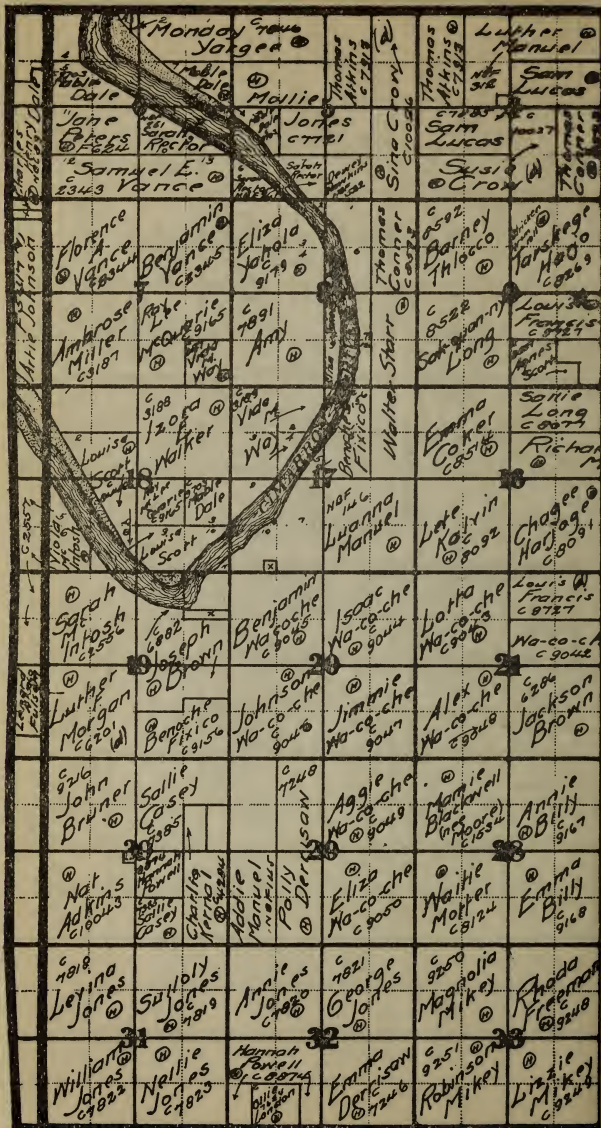 Monday
Yargee
C 7846
Mable
Dale
Mable
Dale
Mollie
Jones
C 7721
Thomas
Atkins
C 7913
Sina Crow
C 10026
Thomas
Atkins
C 7913
Luther
Manuel
NBF
312
Sam
Lucas
Jane
Peters
Sarah
Rector
Sarah
Rector
Sam
Lucas
Susie
Crow
Thomas
Conner
Samuel E.
Vance
C 2343
Florence
A
Vance
C 2344
Benjamin
Vance
C 2345
Eliza
Yahola
C
9179
Thomas
Conner
C 8573
C
8592
Barney
Thlocco
Tarskege
Hajo
C 8269
Artie Johnson
Ambrose
Miller
C 3187
Ray Lee
McQuarie
C 9165
Vida
Way
C
7891
Amy
Walter Starr
C
8522
Sak-quan-ny
Long
Louis
Francis
C 8727
Agnes
Scott
C
3188
Izora
E
Walker
C
3189
Vida
Way
CIMARRON
Benoche
Fixico
Emma
Coker
C 8514
Sanie
Long
C 8077
Richar
M
Louisa
Scott
18
Mable
Dale
Louisa
Scott
17
NBF
146
Luanna
Manuel
Lete
Kalvin
C
8092
16
Chagee
Harjoge
C 8091
C 2557
Viola
McIntosh
Sarah
McIntosh
C 2556
C
6882
Joseph
Brown
Benjamin
Wa-co-che
C 9045
Isaac
Wa-co-che
C
9044
Lotta
Wa-co-che
C 9043
Louis
Francis
C 8727
Wa-co-ch
C 9042
19
20
21
Luther
Morgan
C 6201
(d)
Benoche
Fixico
C 9156
Johnson
Wa-co-che
C
9046
Jimmie
Wa-co-che
C
9047
Alex
Wa-co-che
C 9048
C
6286
Jackson
Brown
C
9216
John
Bruner
Sallie
Casey
C
7385
C
7248
Polly
Derrisaw
Aggie
Wa-co-che
C
9049
Mamie
Blackwell
(nee
Moore)
C 1634
Annie
Billy
C
9167
30
29
28
Nat
Adkins
C 10043
Hannah
Powell
Sallie
Casey
Charlie
Kernal
C 4284
Addie
Manuel
Eliza
Wa-co-che
C 9050
Waitie
Motter
C 8124
Emma
Billy
C
9168
C
7818
Levina
Jones
Sulloly
Jones
C
7819
Annie
Jones
C 7820
C
7821
George
Jones
C
9250
Magnolia
Mikey
Rhoda
Freeman
C
9248
31
32
33
William
Jones
C 7822
Nellie
Jones
C 7823
Hannah
Powell
C 8874
Emma
Derrisaw
C
7246
C
9251
Robinson
Mikey
Lizzie
Mikey
C 9249